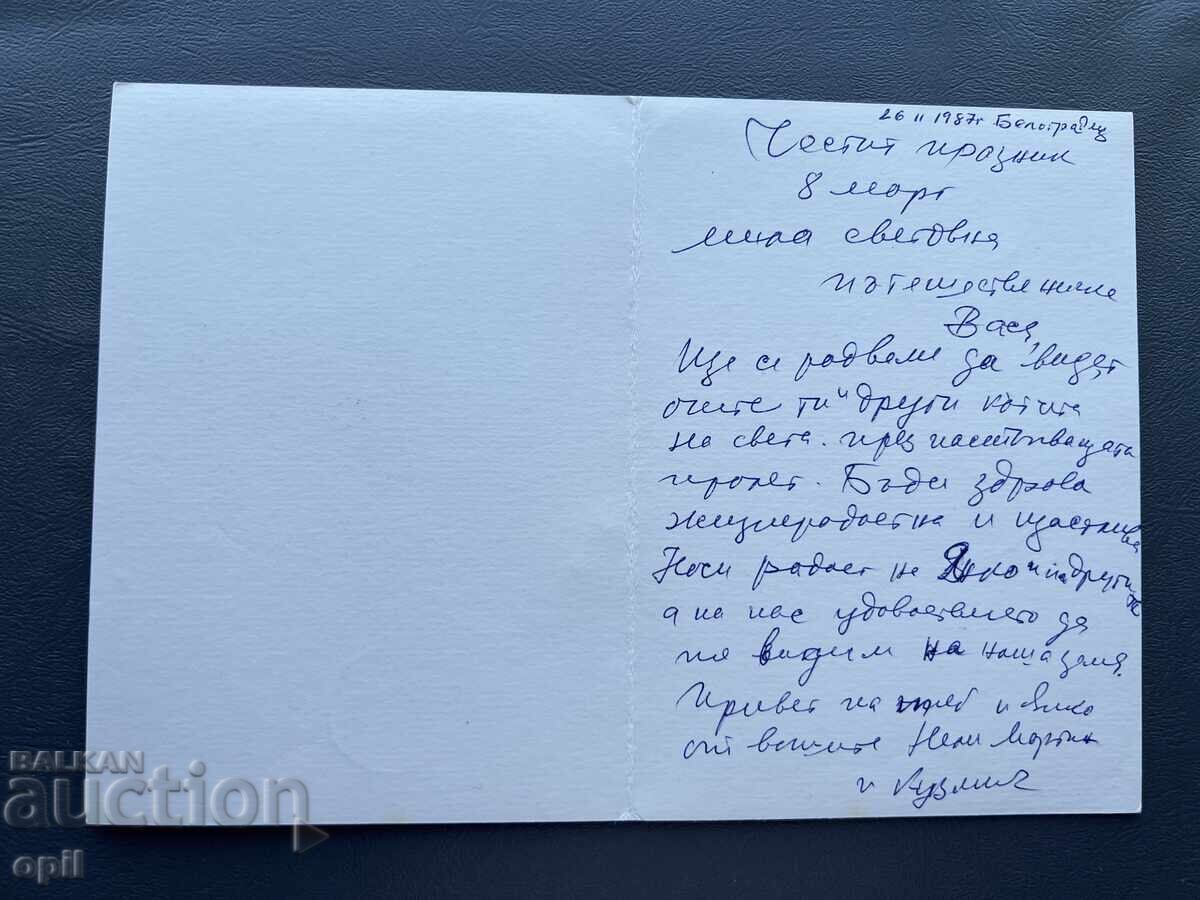 26 II 1987г Белоградец
Честит празник
8 март
мила световна
пътешественице
Вася,
Ще се радваме да видят
очите ти и други кътита
на света през настъпващата
пролет. Бъди здрава
жизнерадостна и щастлива
Носи радост на Янко и на другите
а на нас удоволствието да
те видим на наша земя.
Привет на теб и Янко
от вашите Нели Мартин
и Кузмич
BALKAN
auction
opil